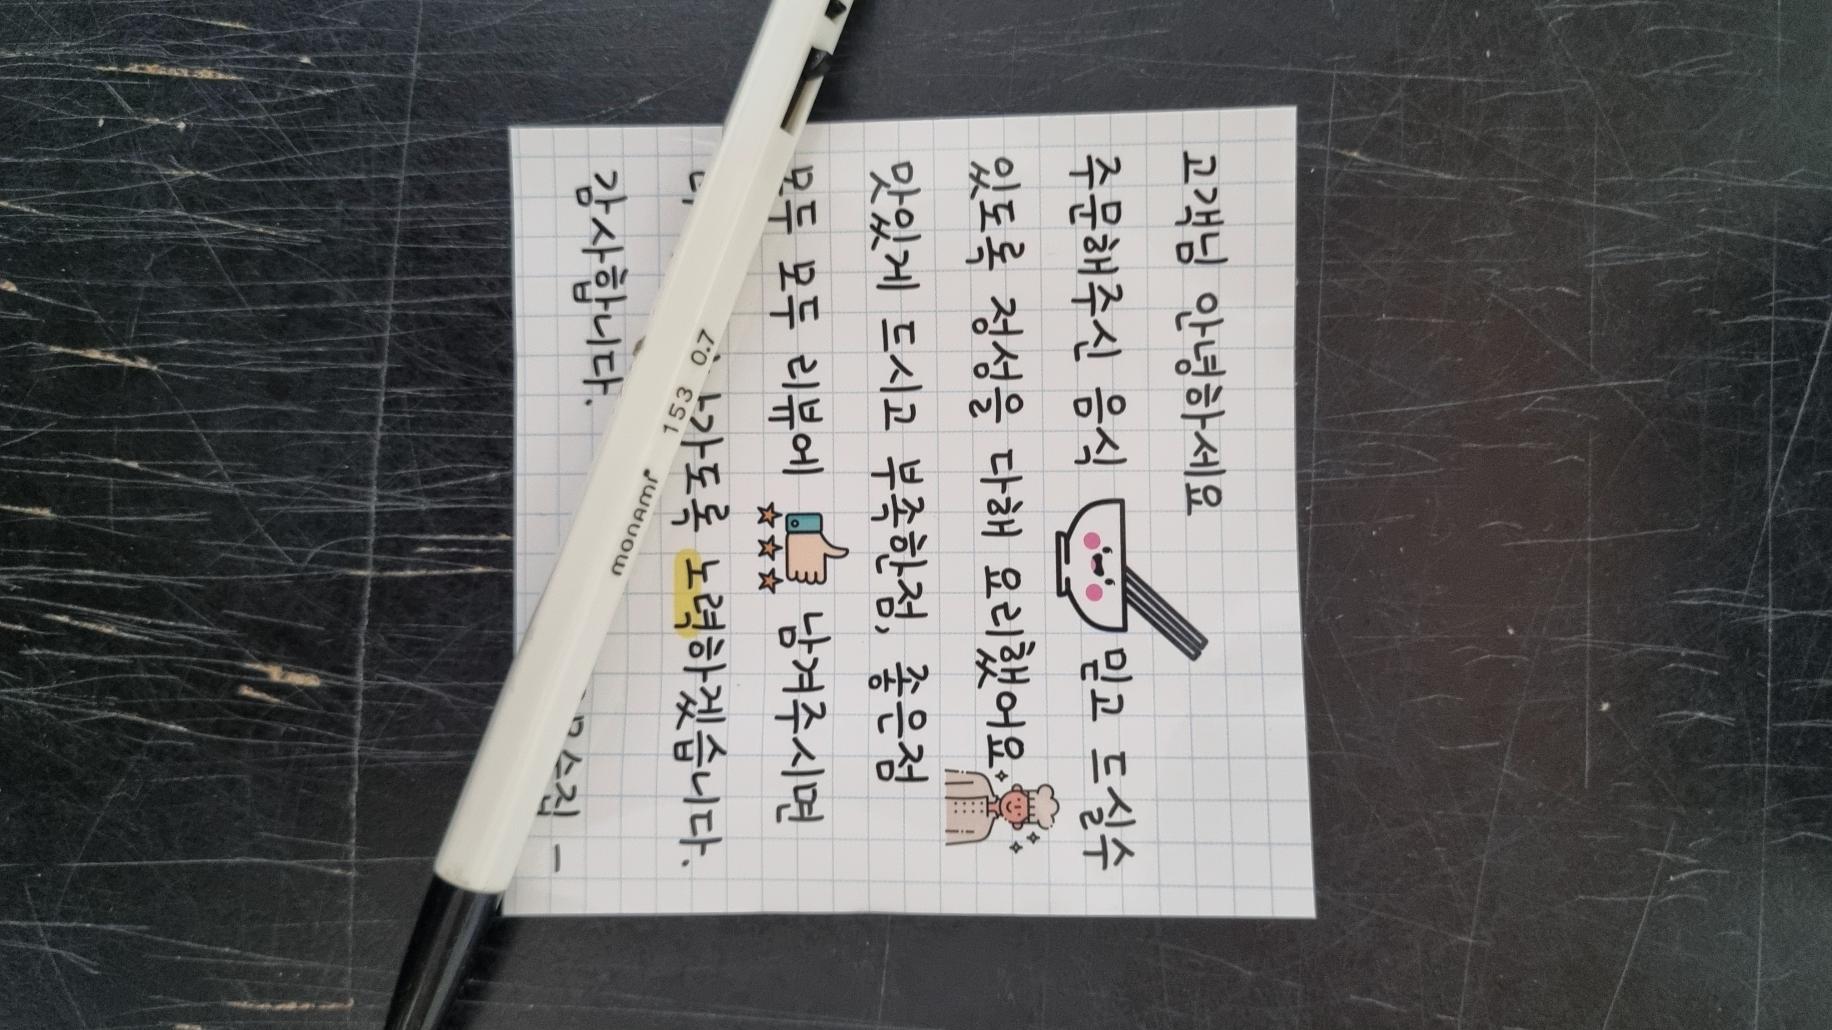 고객님 안녕하세요
주문해주신 음식 믿고 드실수
있도록 정성을 다해 요리했어요
맛있게 드시고 부족한점, 좋은점
모두 모두 리뷰에 남겨주시면
노력하겠습니다.
감사합니다.
153 0.7
monami